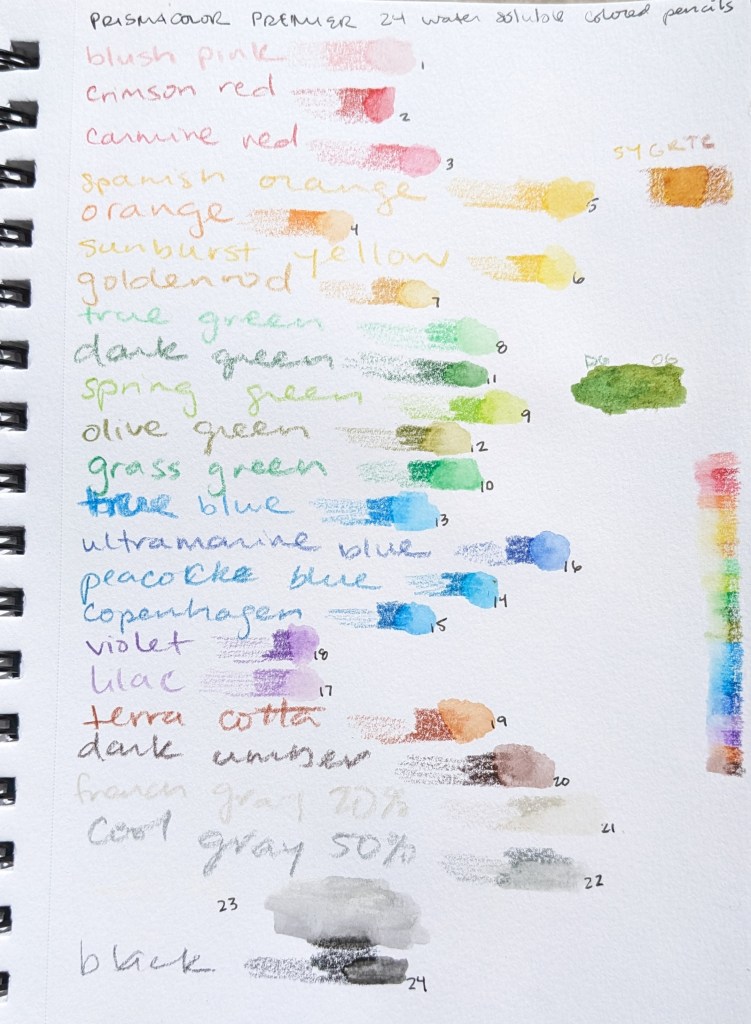 PRISMACOLOR PREMIER 24 water soluble colored pencils
blush pink 1
crimson red 2
carmine red 3
SY GR TC
spanish orange 5
orange 4
sunburst yellow 6
goldenrod 7
true green 8
dark green 11
DG OG
spring green 9
olive green 12
grass green 10
true blue 13
ultramarine blue 16
peacocke blue 14
copenhagen 15
violet 18
lilac 17
terra cotta 19
dark umber 20
french gray 20% 21
cool gray 50% 22
23
black 24